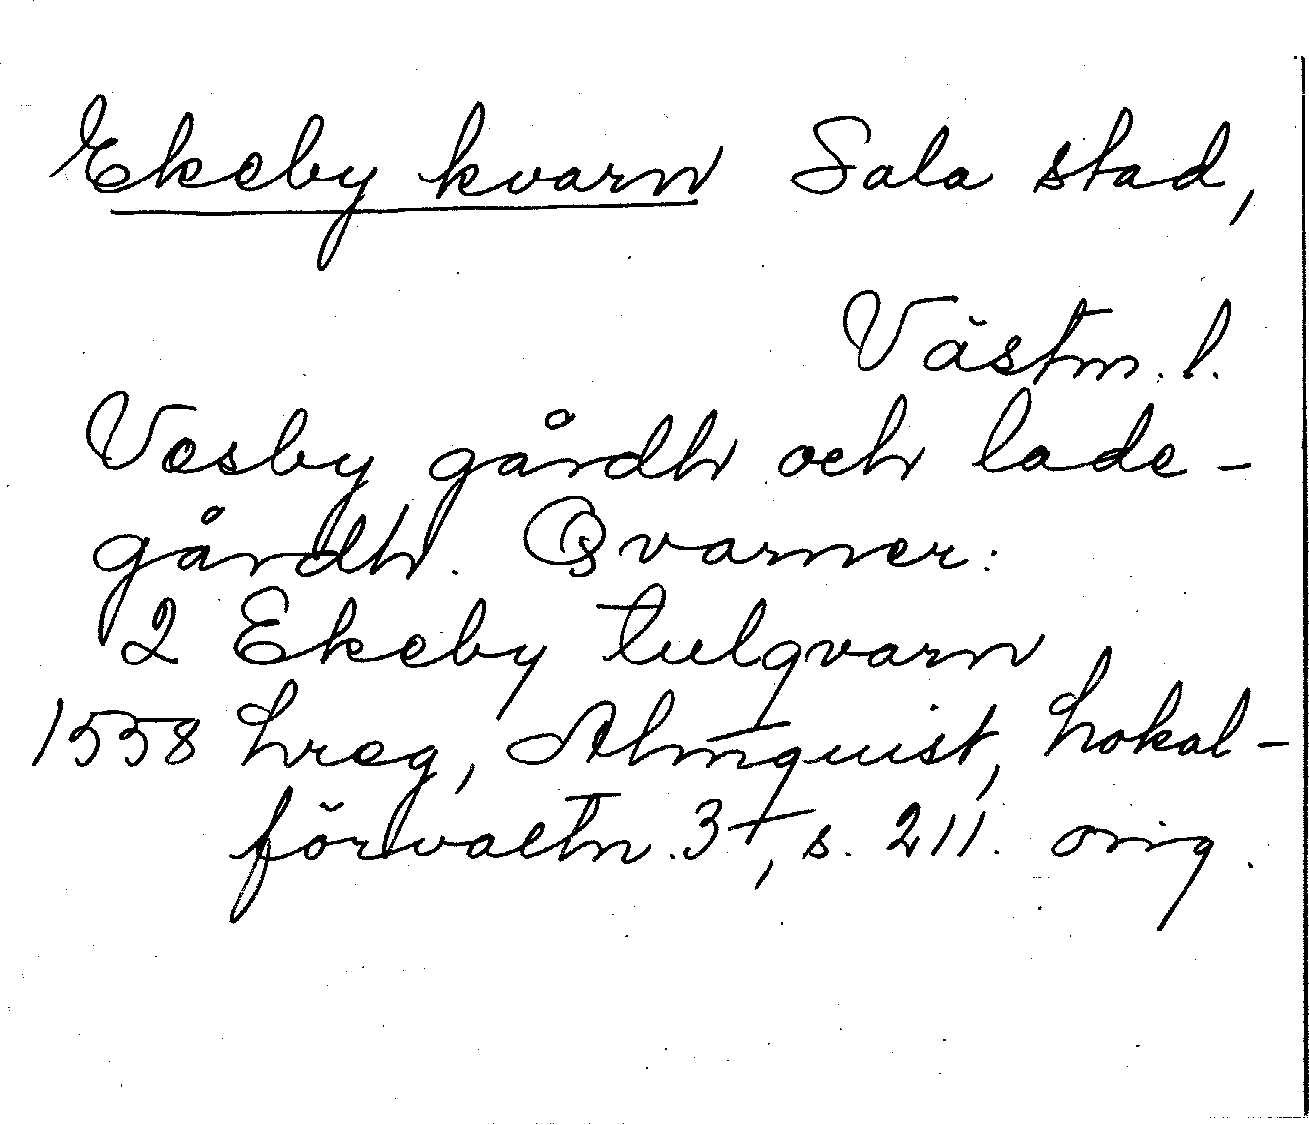 Ekeby kvarn Sala stad,
Västm. l.
Vesby gårdh och lade-
gårdh. Qvarner:
2 Ekeby tulqvarn
1558 hreg, Almquist, Lokal-
förvaltn. 3, s. 211. orig.